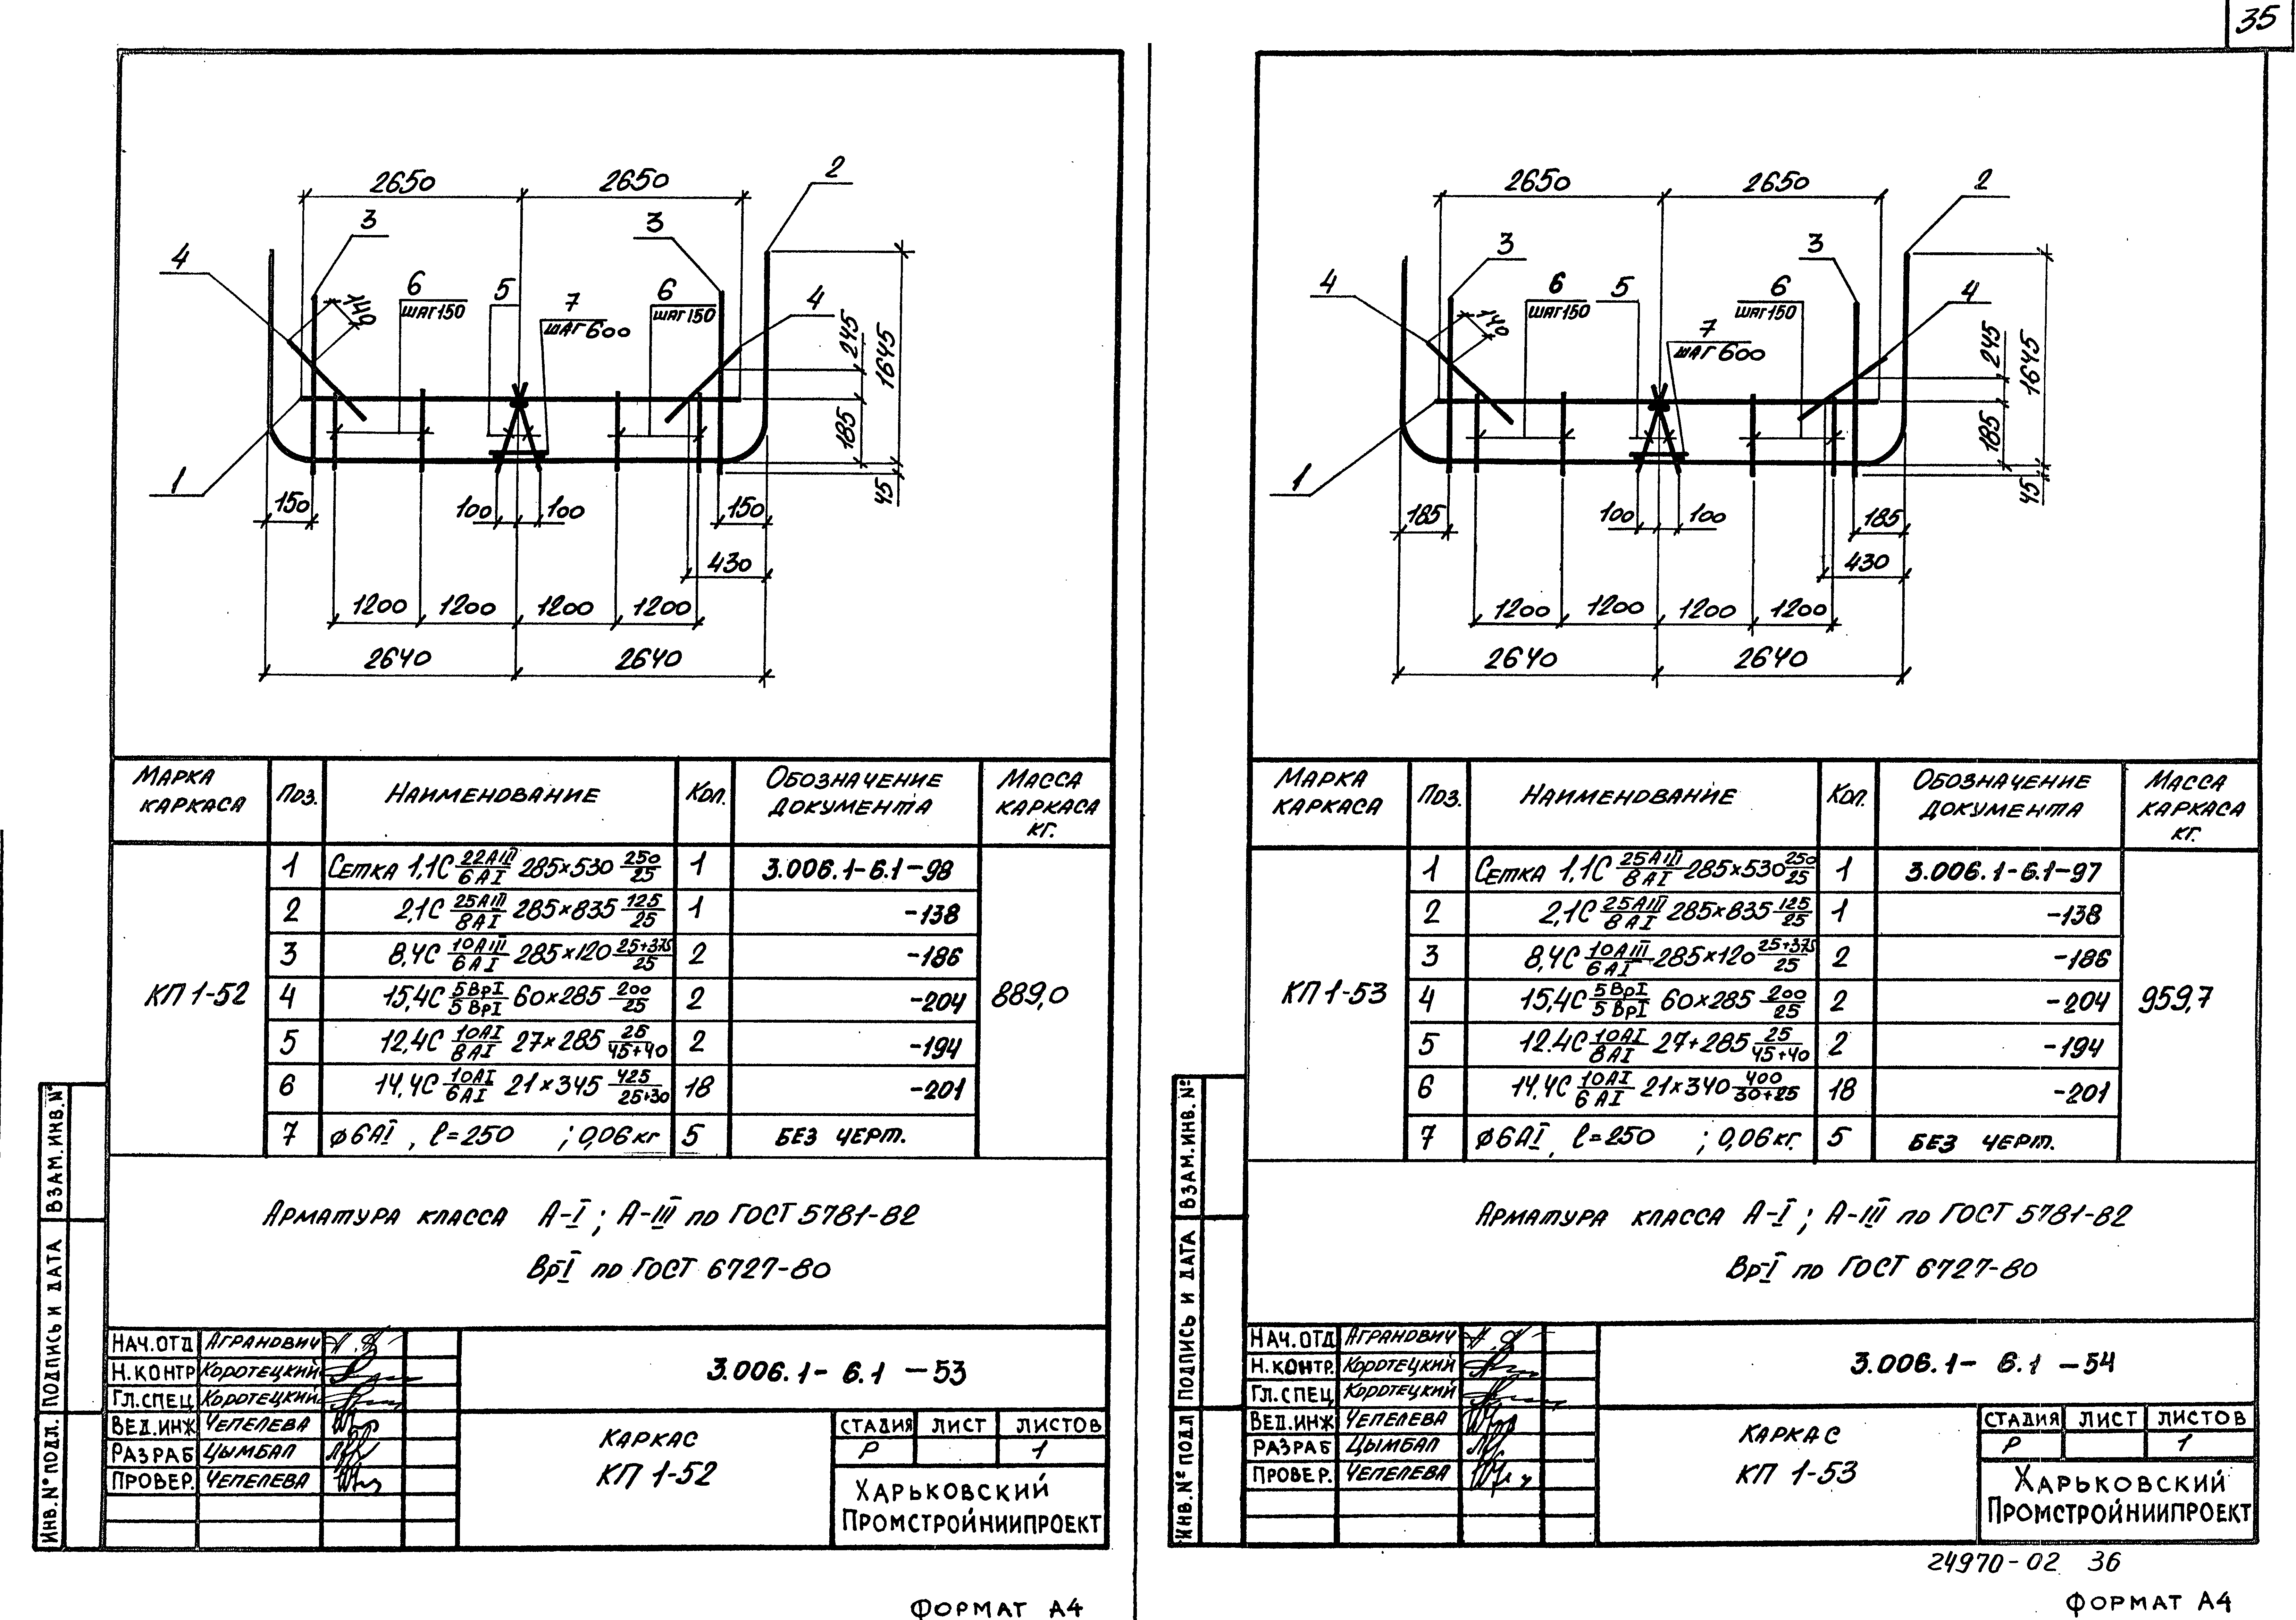 35
2650 2650
2
3 3
4
140
6
ШАГ150
5
7
ШАГ600
6
ШАГ150
4
245
1645
185
45
1
150
100 100
150
430
1200 1200 1200 1200
2640 2640
МАРКА КАРКАСА Поз. НАИМЕНОВАНИЕ Кол. ОБОЗНАЧЕНИЕ ДОКУМЕНТА МАССА КАРКАСА КГ.
КП 1-52 889,0
1 СЕТКА 1,1С 22АIII/6АI 285×530 250/25 1 3.006.1-6.1-98
2 2,1С 25АIII/8АI 285×835 125/25 1 -138
3 8,4С 10АIII/6АI 285×120 25+375/25 2 -186
4 15,4С 5ВрI/5ВрI 60×285 200/25 2 -204
5 12,4С 10АI/8АI 27×285 25/45+40 2 -194
6 14,4С 10АI/6АI 21×345 425/25+30 18 -201
7 ø6АI, ℓ=250 ; 0,06кг 5 БЕЗ ЧЕРТ.
АРМАТУРА КЛАССА А-I; А-III по ГОСТ 5781-82
Вр-I по ГОСТ 6727-80
ВЗАМ.ИНВ.№
ПОДПИСЬ И ДАТА
ИНВ.№ ПОДЛ.
НАЧ.ОТД АГРАНОВИЧ
Н.КОНТР КОРОТЕЦКИЙ
ГЛ.СПЕЦ КОРОТЕЦКИЙ
ВЕД.ИНЖ ЧЕПЕЛЕВА
РАЗРАБ ЦЫМБАЛ
ПРОВЕР. ЧЕПЕЛЕВА
3.006.1- 6.1 -53
КАРКАС
КП 1-52
СТАДИЯ ЛИСТ ЛИСТОВ
Р 1
ХАРЬКОВСКИЙ
ПРОМСТРОЙНИИПРОЕКТ
ФОРМАТ А4
2650 2650
2
3 3
4
140
6
ШАГ150
5
7
ШАГ600
6
ШАГ150
4
245
1645
185
45
1
185
100 100
185
430
1200 1200 1200 1200
2640 2640
МАРКА КАРКАСА Поз. НАИМЕНОВАНИЕ Кол. ОБОЗНАЧЕНИЕ ДОКУМЕНТА МАССА КАРКАСА КГ.
КП 1-53 959,7
1 СЕТКА 1,1С 25АIII/8АI 285×530 250/25 1 3.006.1-6.1-97
2 2,1С 25АIII/8АI 285×835 125/25 1 -138
3 8,4С 10АIII/6АI 285×120 25+375/25 2 -186
4 15,4С 5ВрI/5ВрI 60×285 200/25 2 -204
5 12.4С 10АI/8АI 27+285 25/45+40 2 -194
6 14,4С 10АI/6АI 21×340 400/30+25 18 -201
7 ø6АI, ℓ=250 ; 0,06кг. 5 БЕЗ ЧЕРТ.
АРМАТУРА КЛАССА А-I; А-III по ГОСТ 5781-82
Вр-I по ГОСТ 6727-80
ВЗАМ.ИНВ.№
ПОДПИСЬ И ДАТА
ИНВ.№ ПОДЛ
НАЧ.ОТД АГРАНОВИЧ
Н.КОНТР. КОРОТЕЦКИЙ
ГЛ.СПЕЦ КОРОТЕЦКИЙ
ВЕД.ИНЖ ЧЕПЕЛЕВА
РАЗРАБ ЦЫМБАЛ
ПРОВЕР. ЧЕПЕЛЕВА
3.006.1- 6.1 -54
КАРКАС
КП 1-53
СТАДИЯ ЛИСТ ЛИСТОВ
Р 1
ХАРЬКОВСКИЙ
ПРОМСТРОЙНИИПРОЕКТ
24970-02 36
ФОРМАТ А4